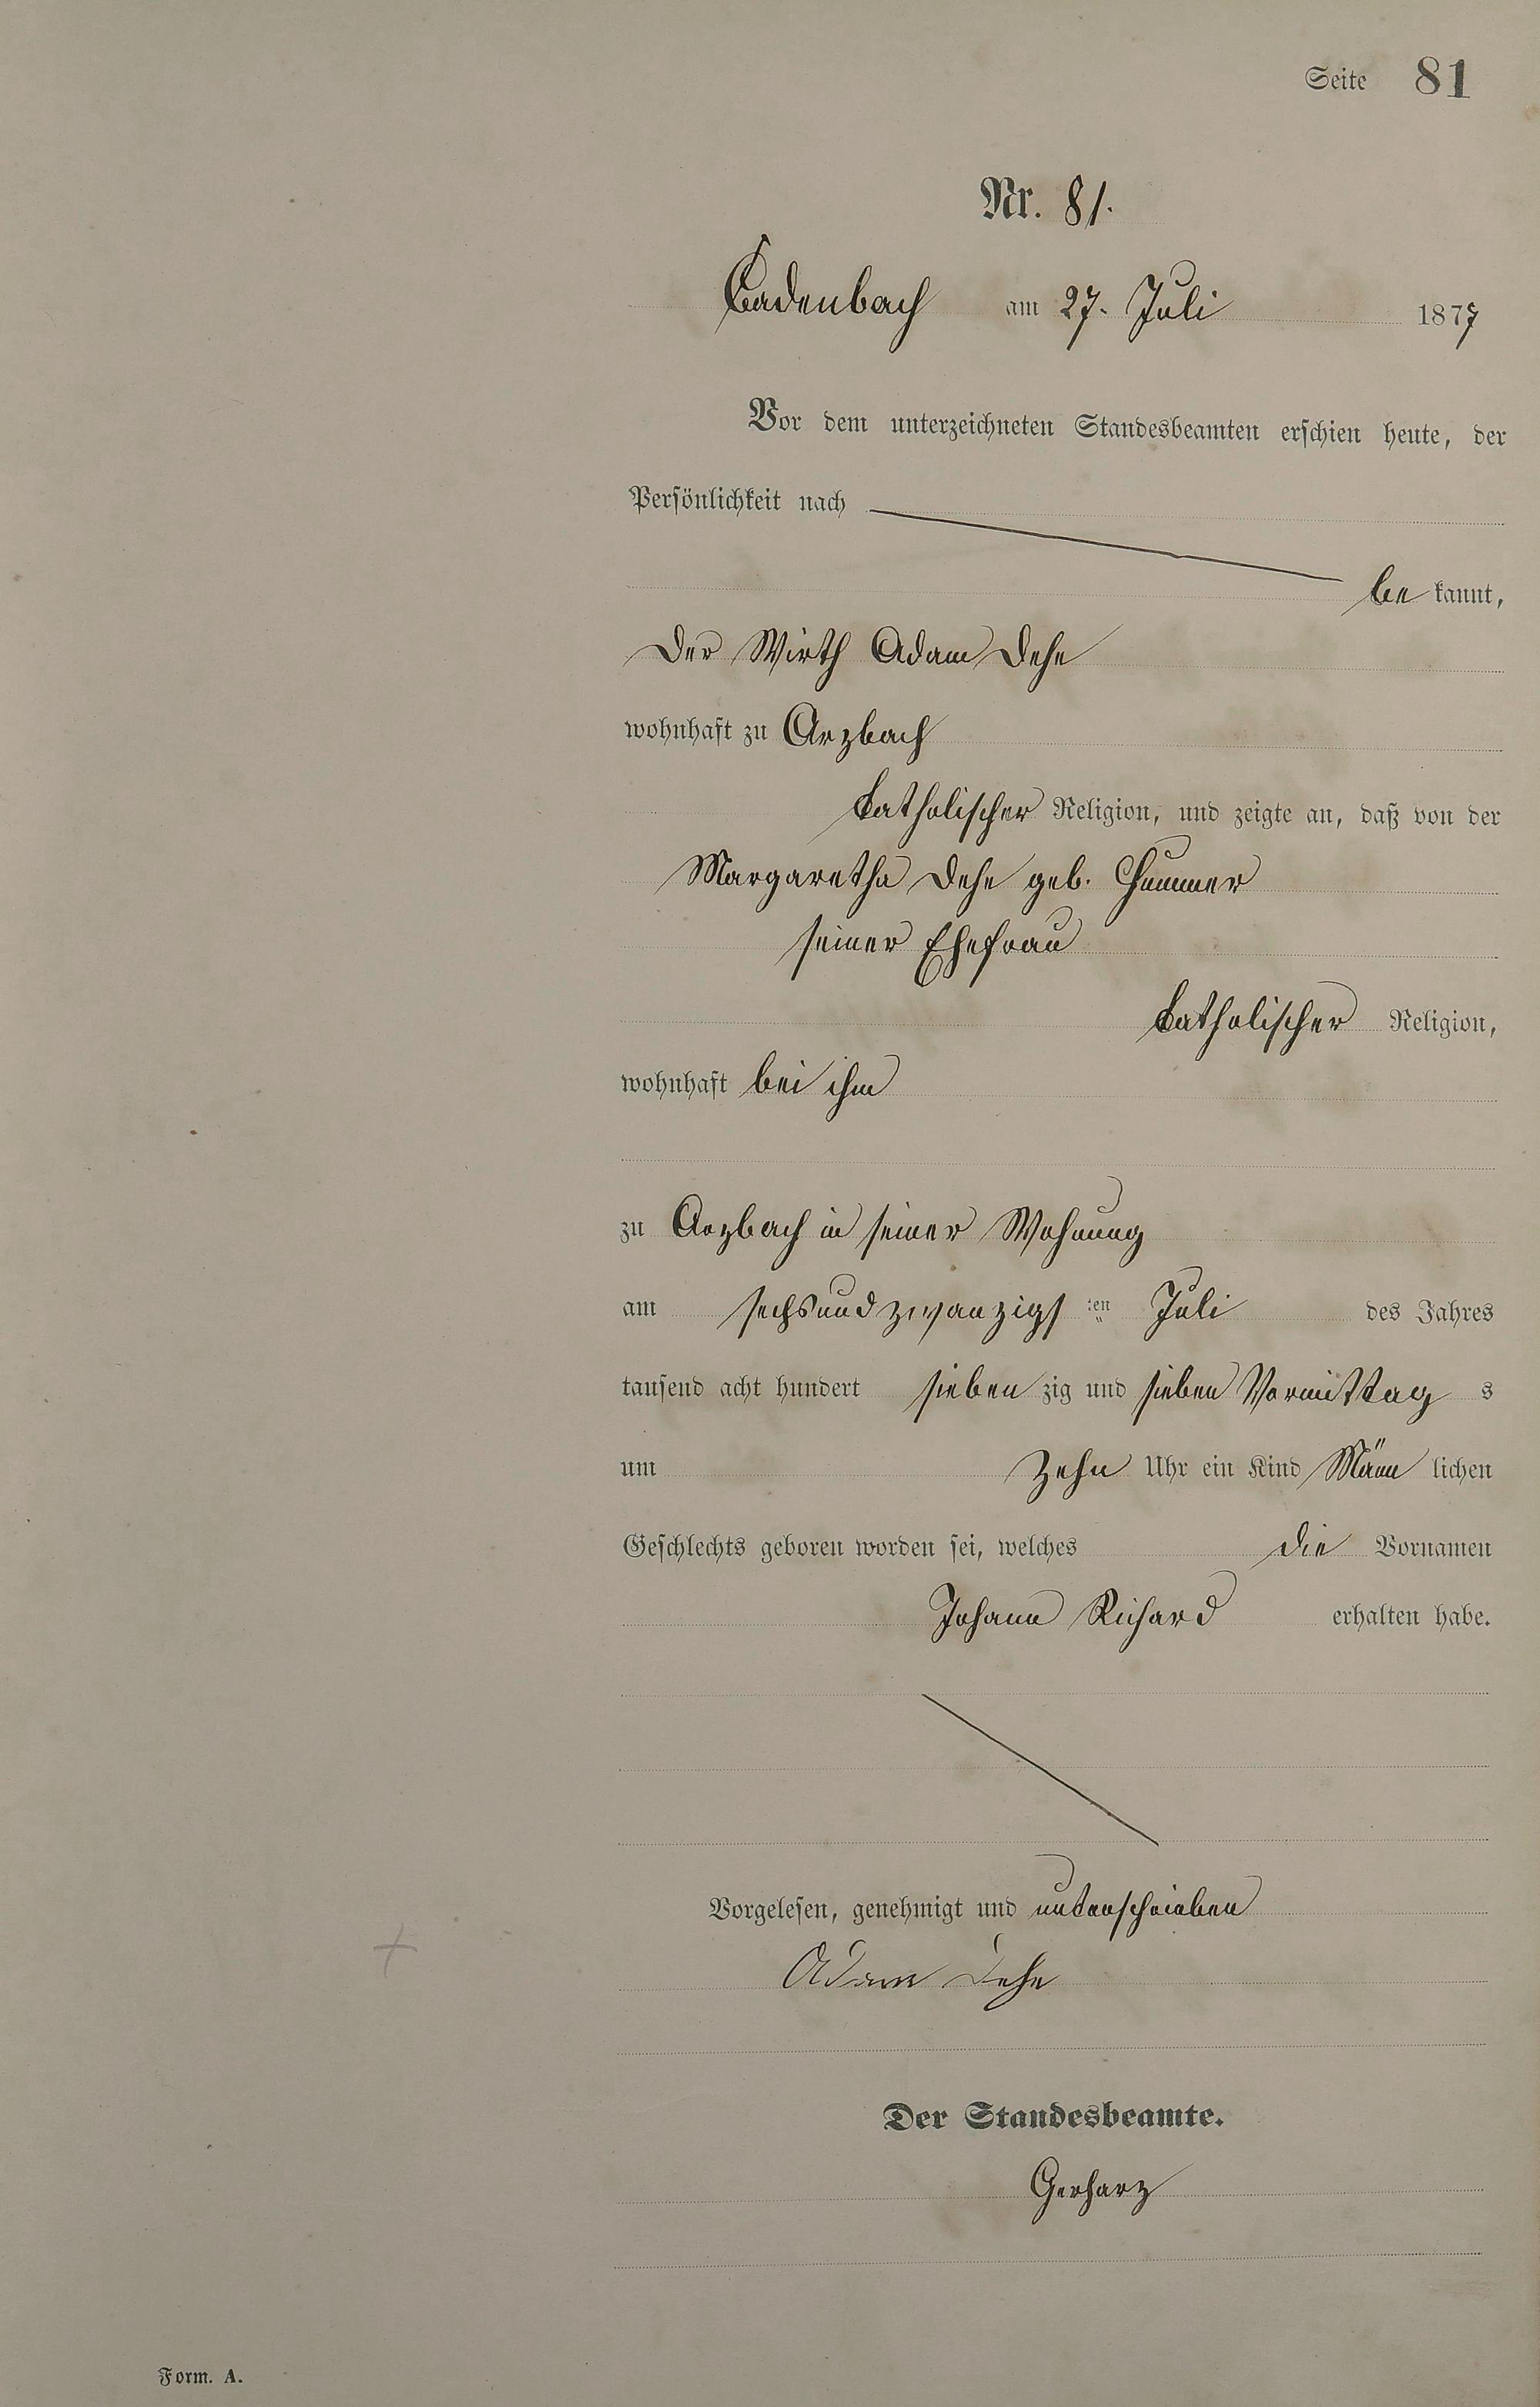 Seite 81
Nr. 81.
Kadenbach am 27. Juli 1877
Vor dem unterzeichneten Standesbeamten erschien heute, der
Persönlichkeit nach
be kannt,
Der Wirth Adam Dehe
wohnhaft zu Arzbach
katholischer Religion, und zeigte an, daß von der
Margaretha Dehe geb.
seiner Ehefrau
katholischer Religion,
wohnhaft bei ihm
zu Arzbach in seiner Wohnung
am sechsundzwanzigs ten Juli des Jahres
tausend acht hundert sieben zig und sieben Vormittag s
um Zehn Uhr ein Kind Männ lichen
Geschlechts geboren worden sei, welches die Vornamen
Johann Richard erhalten habe.
Vorgelesen, genehmigt und unterschrieben
Adam Dehe
Der Standesbeamte.
Gerharz
Form. A.